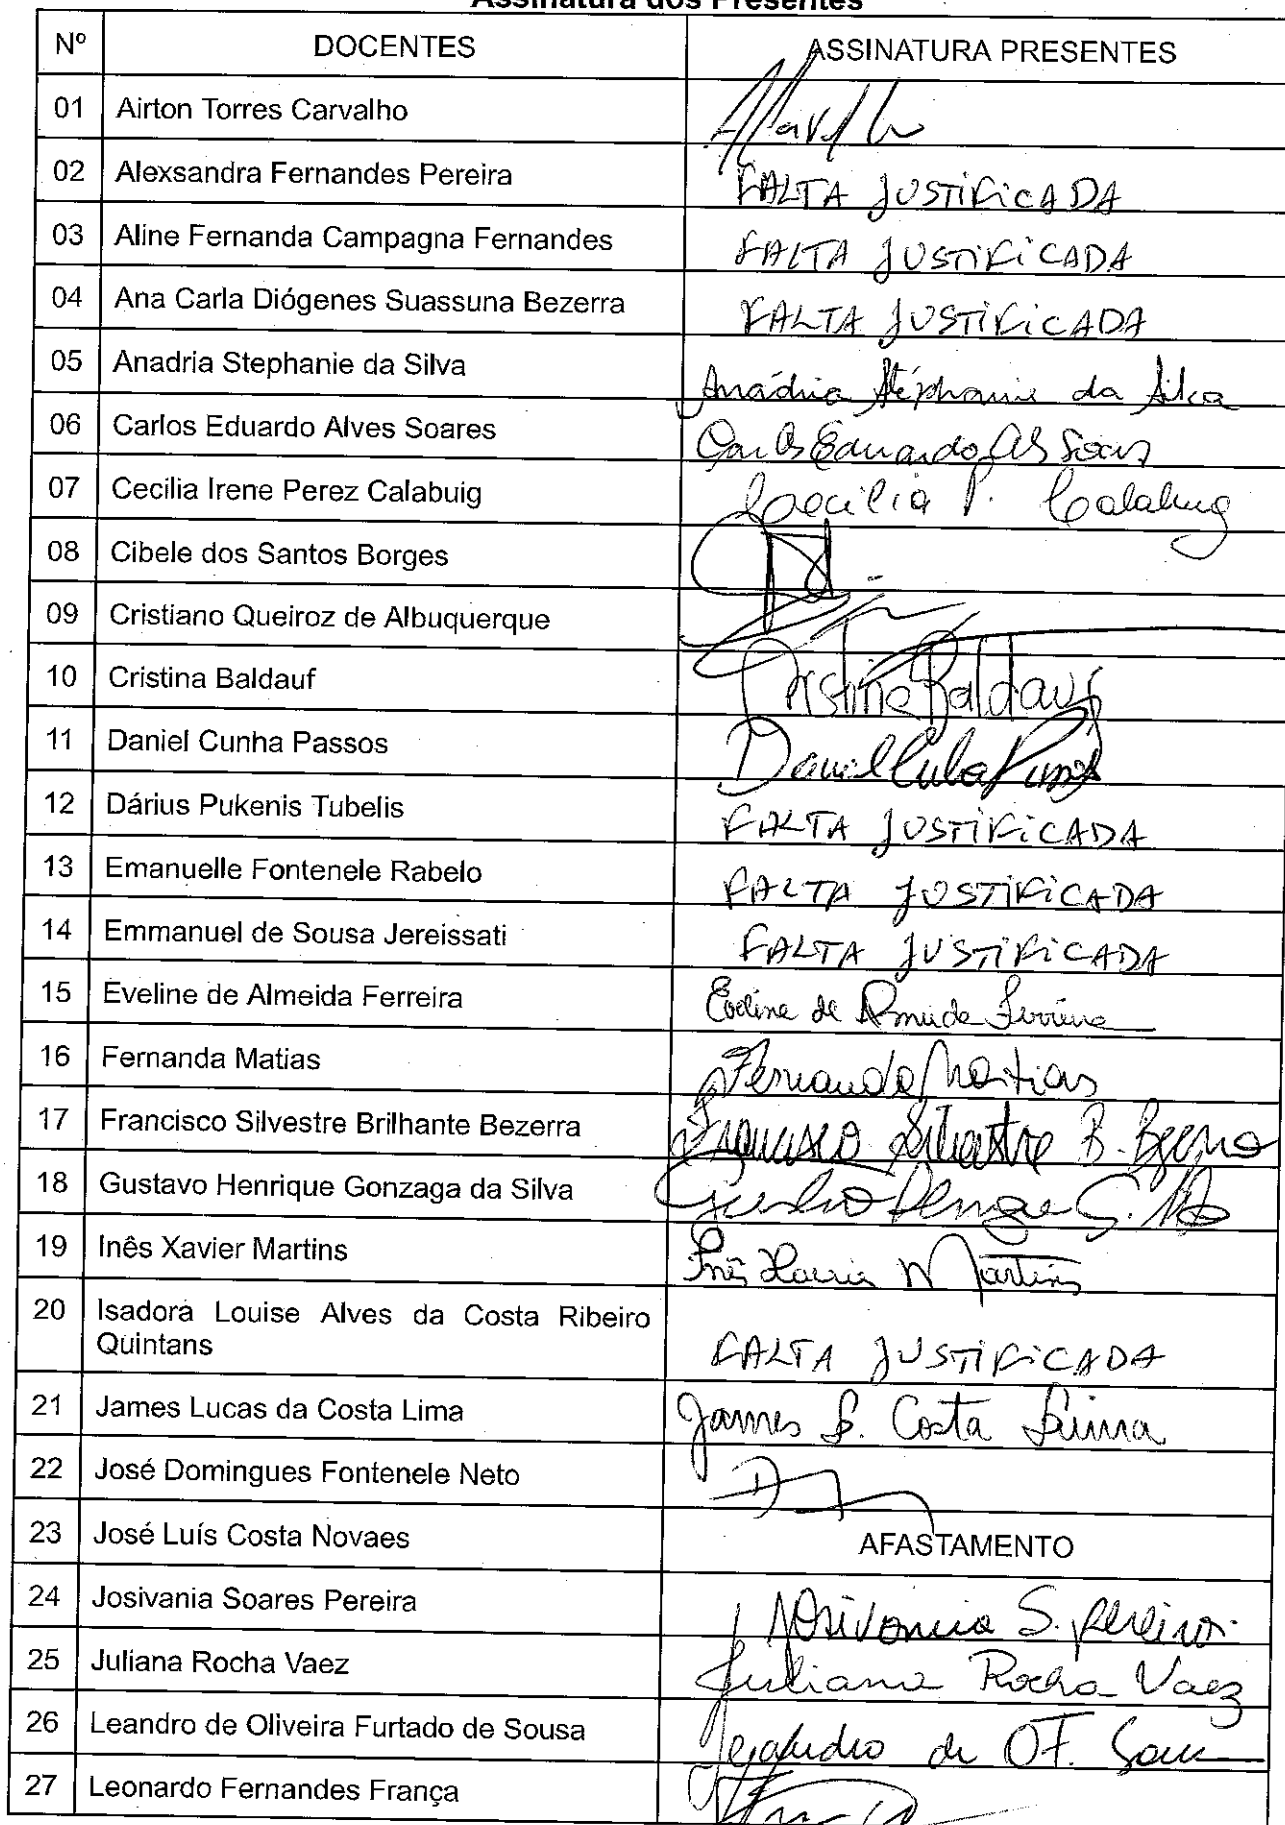 Assinatura dos Presentes
Nº DOCENTES ASSINATURA PRESENTES
01 Airton Torres Carvalho
02 Alexsandra Fernandes Pereira FALTA JUSTIFICADA
03 Aline Fernanda Campagna Fernandes FALTA JUSTIFICADA
04 Ana Carla Diógenes Suassuna Bezerra FALTA JUSTIFICADA
05 Anadria Stephanie da Silva Anádria Stéphanie da Silva
06 Carlos Eduardo Alves Soares Carlos Eduardo Als Soares
07 Cecilia Irene Perez Calabuig Cecilia P. Calabuig
08 Cibele dos Santos Borges
09 Cristiano Queiroz de Albuquerque
10 Cristina Baldauf Cristina Baldauf
11 Daniel Cunha Passos Daniel Cunha Passos
12 Dárius Pukenis Tubelis FALTA JUSTIFICADA
13 Emanuelle Fontenele Rabelo FALTA JUSTIFICADA
14 Emmanuel de Sousa Jereissati FALTA JUSTIFICADA
15 Eveline de Almeida Ferreira Eveline de Almeida Ferreira
16 Fernanda Matias Fernanda Matias
17 Francisco Silvestre Brilhante Bezerra Francisco Silvestre B. Bezerra
18 Gustavo Henrique Gonzaga da Silva Gustavo Henrique G.
19 Inês Xavier Martins Inês Xavier Martins
20 Isadora Louise Alves da Costa Ribeiro
Quintans FALTA JUSTIFICADA
21 James Lucas da Costa Lima James L. Costa Lima
22 José Domingues Fontenele Neto
23 José Luís Costa Novaes AFASTAMENTO
24 Josivania Soares Pereira Josivania S. Pereira
25 Juliana Rocha Vaez Juliana Rocha Vaez
26 Leandro de Oliveira Furtado de Sousa Leandro de O F. Sousa
27 Leonardo Fernandes França